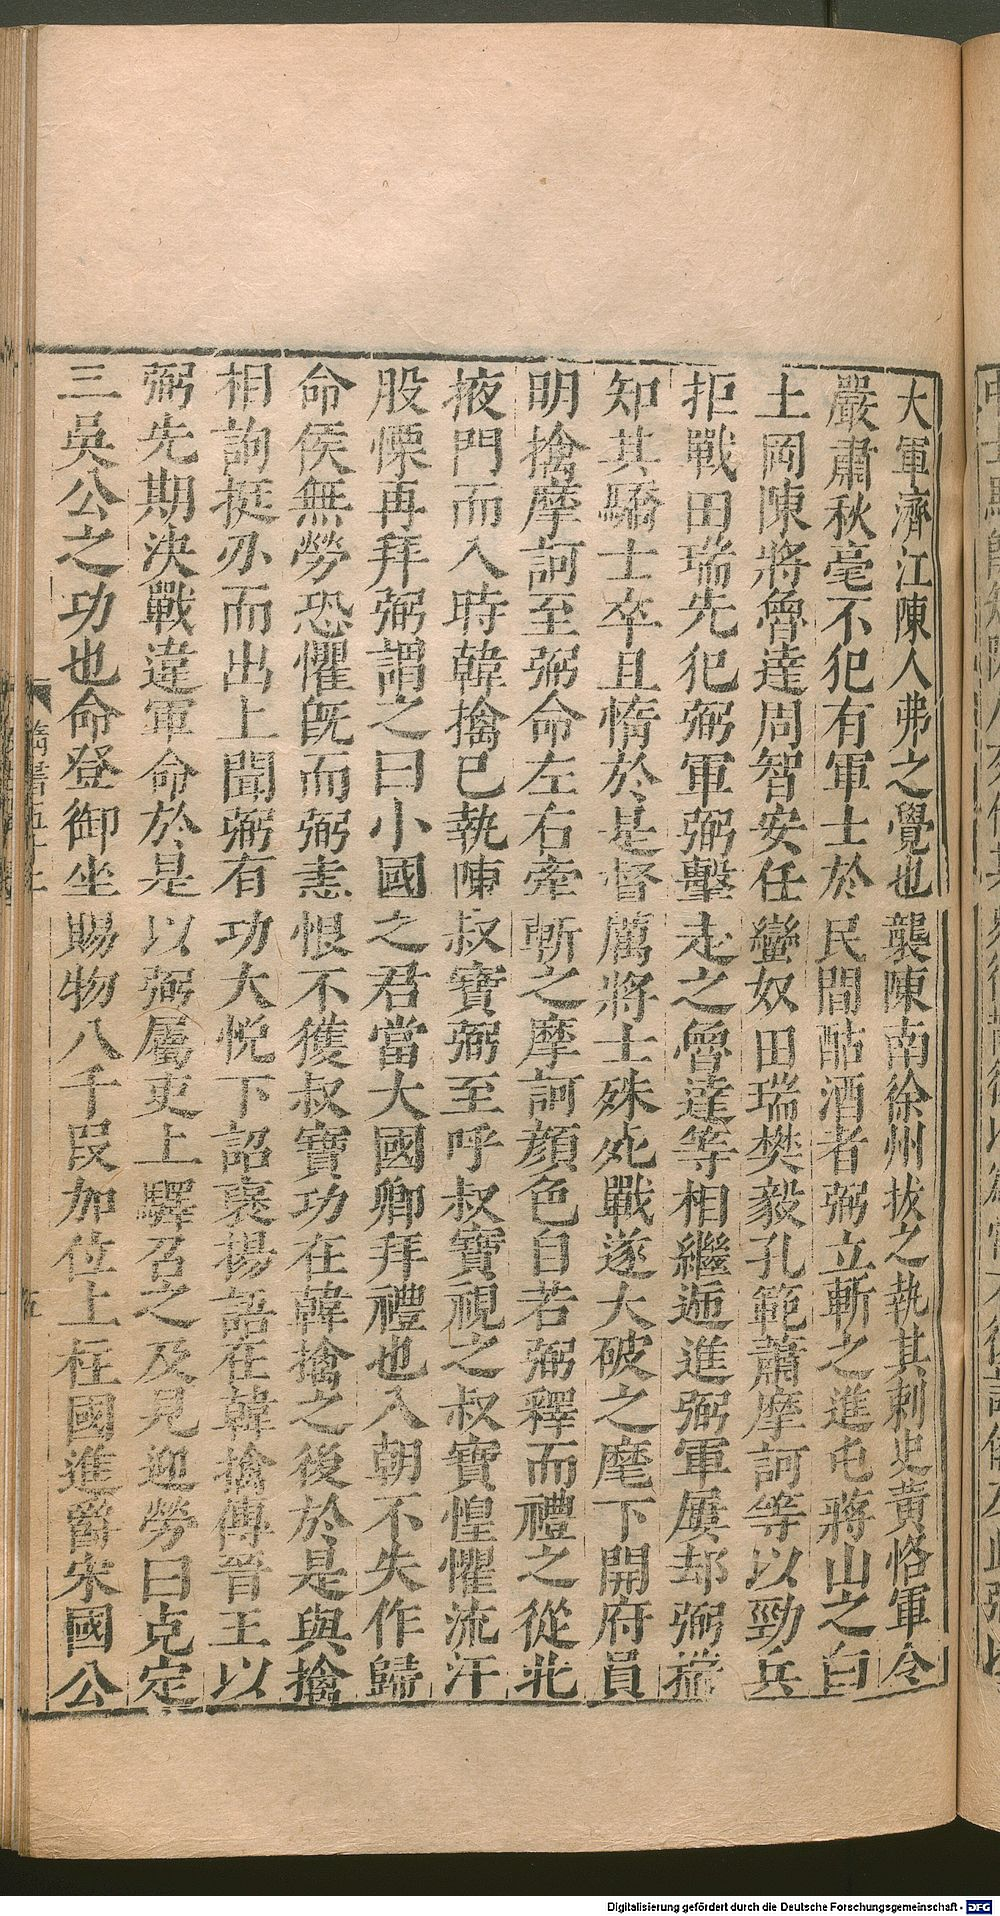 大軍濟江陳人弗之覺也襲陳南徐州拔之執其刺史黃恪軍令
嚴肅秋毫不犯有軍士於民間酤酒者弼立斬之進屯蔣山之白
土岡陳將魯達周智安任蠻奴田瑞樊毅孔範蕭摩訶等以勁兵
拒戰田瑞先犯弼軍弼擊走之魯達等相繼遞進弼軍屢却弼揣
知其驕士卒且惰於是督厲將士殊死戰遂大破之麾下開府員
明擒摩訶至弼命左右牽斬之摩訶顔色自若弼釋而禮之從北
掖門而入時韓擒已執陳叔寶弼至呼叔寶視之叔寶惶懼流汗
股慄再拜弼謂之曰小國之君當大國卿拜禮也入朝不失作歸
命侯無勞恐懼既而弼恚恨不獲叔寶功在韓擒之後於是與擒
相詢挺刃而出上聞弼有功大悅下詔褒揚語在韓擒傳晉王以
弼先期決戰違軍命於是以弼屬吏上驛召之及見迎勞曰克定
三吳公之功也命登御坐賜物八千段加位上柱國進爵宋國公
Digitalisierung gefördert durch die Deutsche Forschungsgemeinschaft - DFG